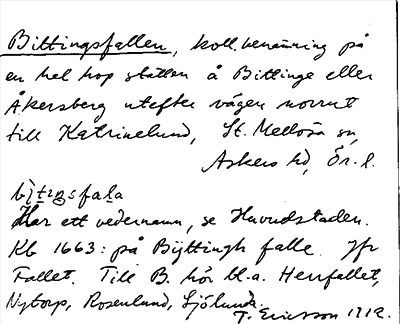 Bittingsfallen, koll. benämning på
en hel hop ställen å Bittinge eller
Åkersberg utefter vägen norrut
till Katrinelund, St. Mellösa sn,
Askers hd, Ör. l.
Har ett vedernamn, se Huvudstaden.
Kb 1663: på Bijttingh falle. Jfr
Fallet. Till B. hör bl.a. Herrfallet,
Nytorp, Rosenlund, Sjölunda.
T. Ericsson 1912.